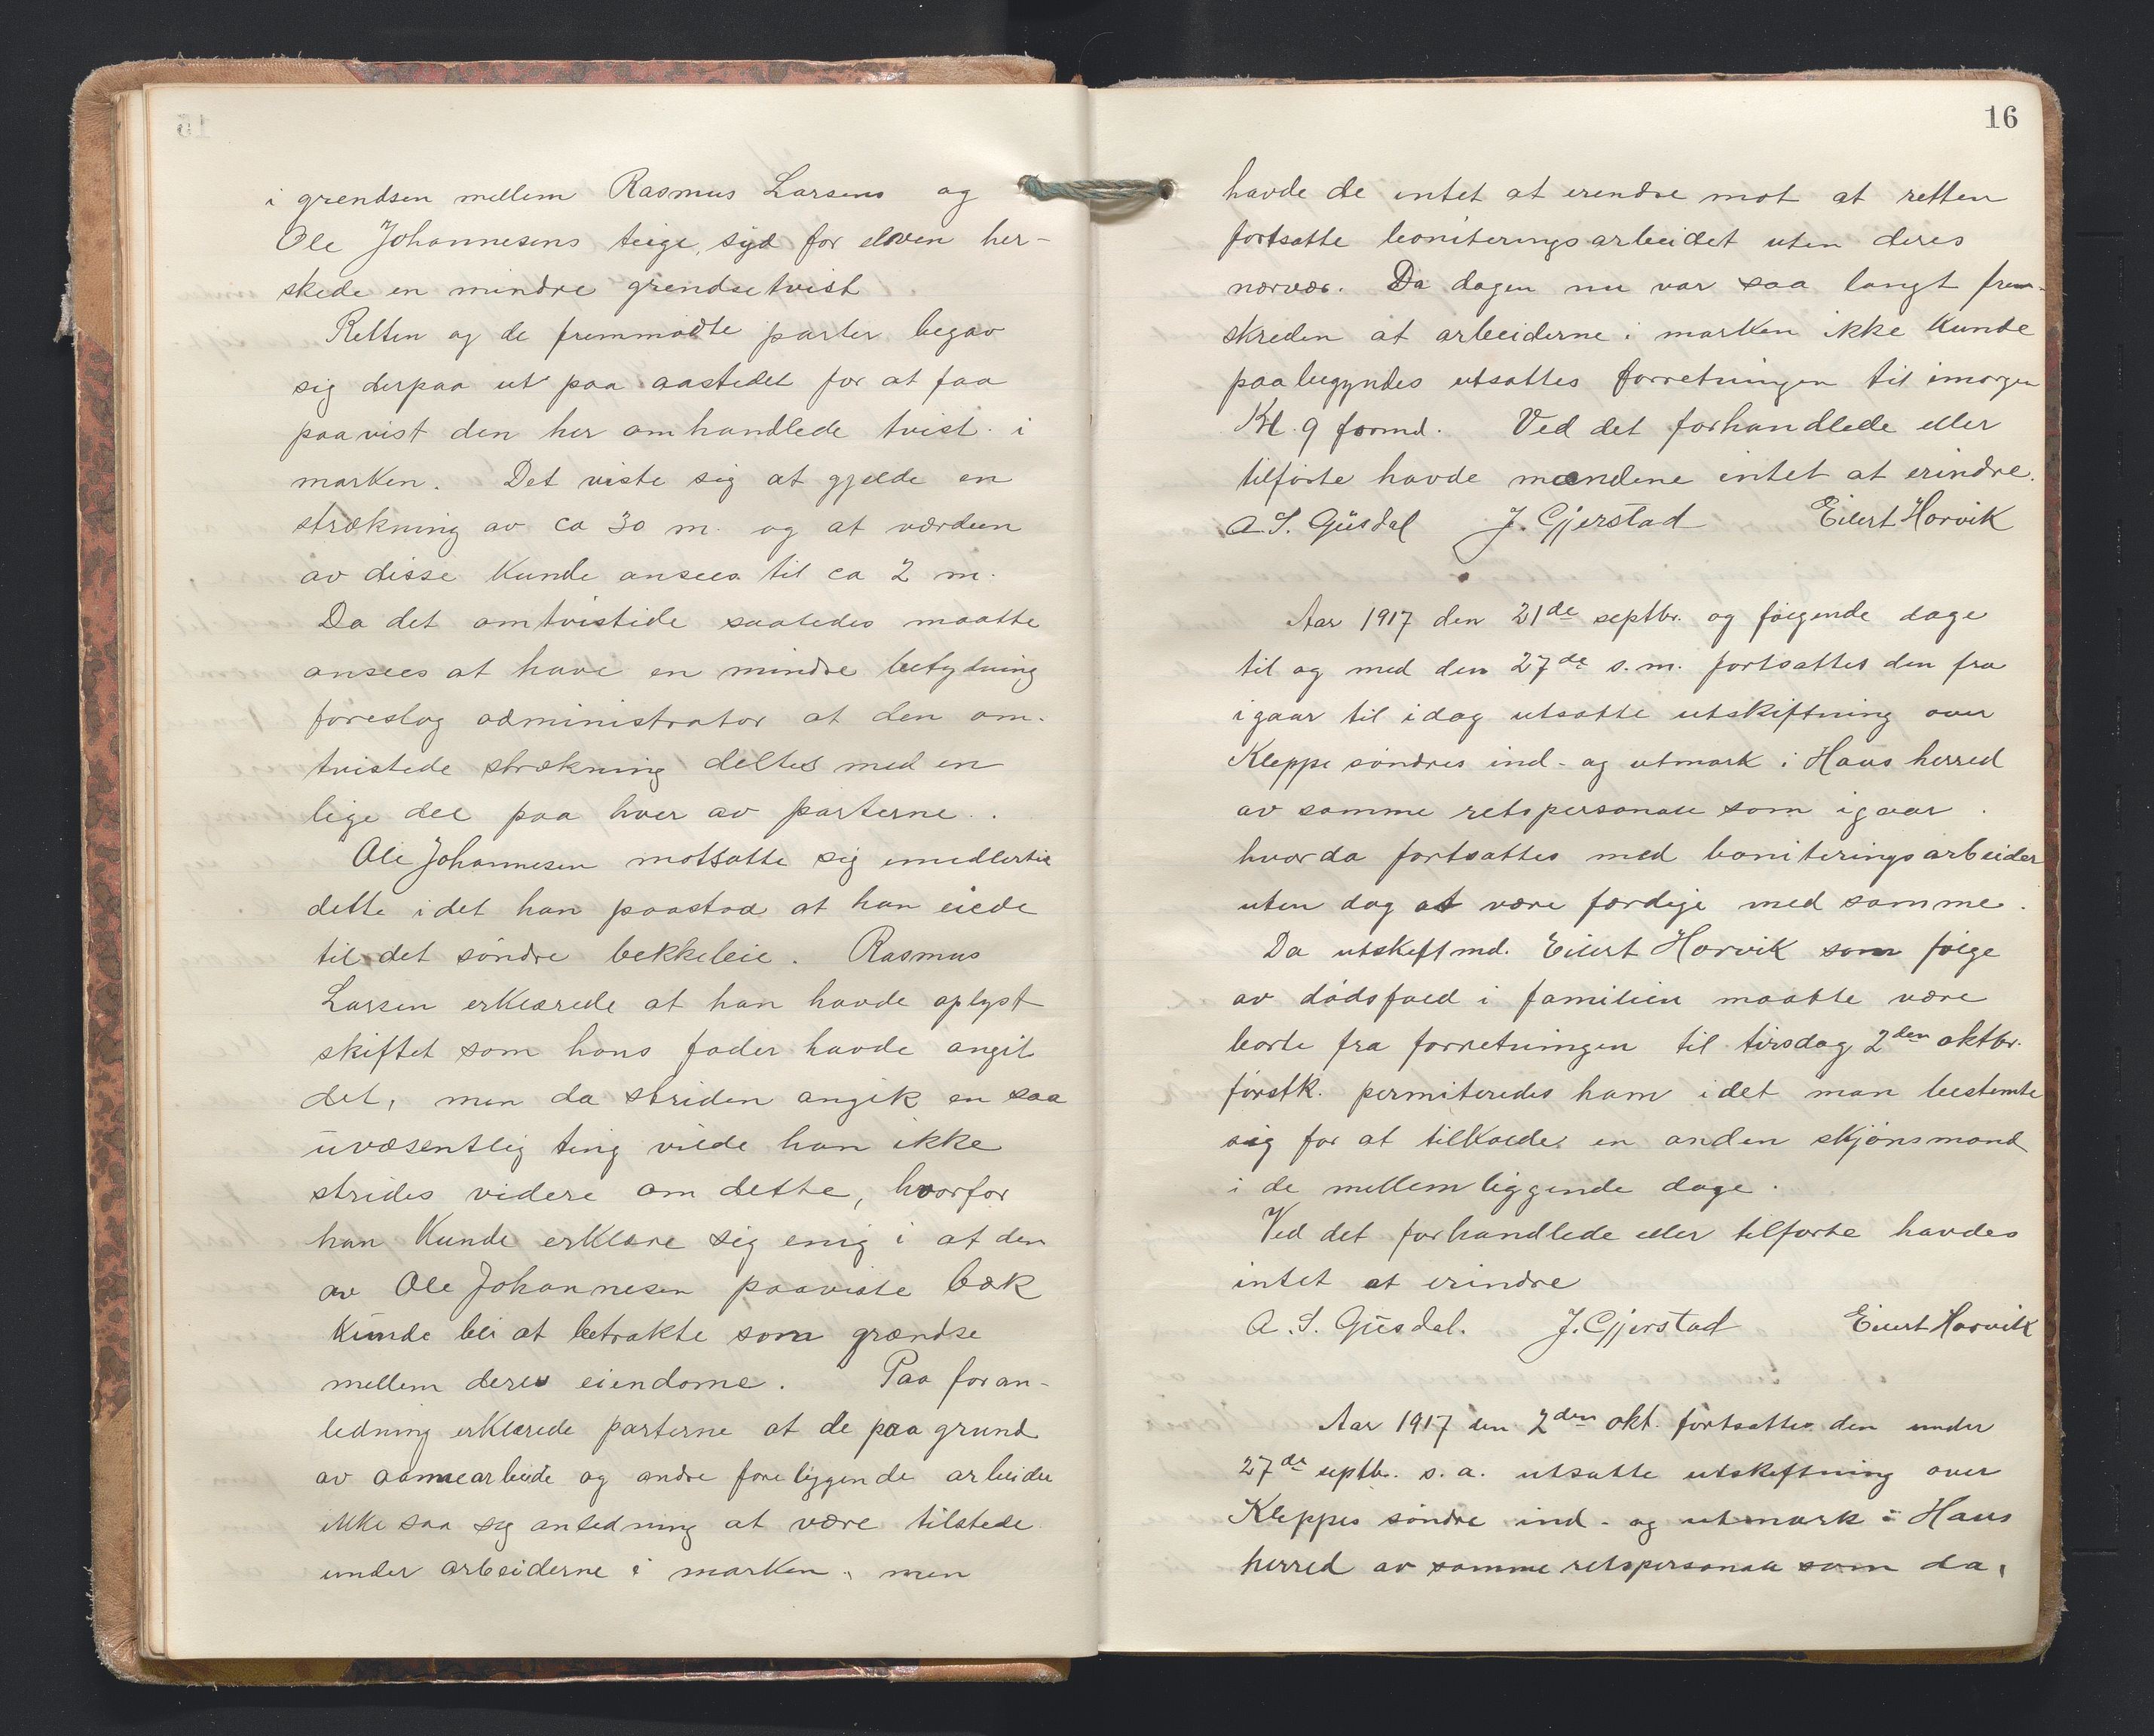 i grendsen mellem Rasmus Larsens og
Ole Johannesens teige, syd for elven her-
skede en mindre grendsetvist
Retten og de fremmødte parter begav
sig derpaa ut paa aastedet for at faa
paavist den her omhandlede tvist i
marken. Det viste sig at gjelde en
strækning av ca 30 m. og at værdien
av disse kunde ansees til ca 2 m.
Da det omtvistede saaledes maatte
ansees at have en mindre betydning
foreslog administrator at den om-
tvistede strækning deltes med en
lige del paa hver av parterne.
Ole Johannesen motsatte sig imedlertid
dette idet han paastod at han eiede
til det søndre bekkeleie. Rasmus
Larsen erklærede at han havde oplyst
skiftet som hans fader havde angit
det, men da striden angik en saa
uvæsentlig ting vilde han ikke
strides videre om dette, hvorfor
han kunde erklære sig enig i at den
av Ole Johannesen paaviste bæk
kunde bli at betrakte som grændse
mellem deres eiendome. Paa foran-
ledning erklærede parterne at de paa grund
av aannearbeide og andre foreliggende arbeider
ikke saa sig anledning at være tilstede
under arbeiderne i marken, men
16
havde de intet at erendre mot at retten
fortsatte boniteringsarbeidet uten deres
nærvær. Da dagen nu var saa langt frem-
skreden at arbeiderne i marken ikke kunde
paabegyndes utsattes forretningen til imorgen
Kl. 9 formd. Ved det forhandlede eller
tilførte havde mændene intet at erindre.
A. S. Güsdal J. Gjerstad Eilert Horvik
Aar 1917 den 21de septbr. og følgende dage
til og med den 27de s.m. fortsattes den fra
igaar til idag utsatte utskiftning over
Kleppe søndres ind- og utmark i Haus herred
av samme retspersonale som igaar.
hvorda fortsattes med boniteringsarbeider
uten dog at være færdige med samme.
Da utskiftmd. Eilert Horvik som følge
av dødsfald i familien maatte være
borte fra forretningen til tirsdag 2den oktbr.
førstk. permiteredes ham idet man bestemte
sig for at tilkalde en anden skjønsmand
i de mellemliggende dage.
Ved det forhandlede eller tilførte havdes
intet at erindre
A. S. Güsdal. J. Gjerstad Eilert Horvik
Aar 1917 den 2den okt. fortsattes den under
27de septb. s. a. utsatte utskiftning over
Kleppes søndre ind- og utmark i Haus
herred av samme retspersonale som da,